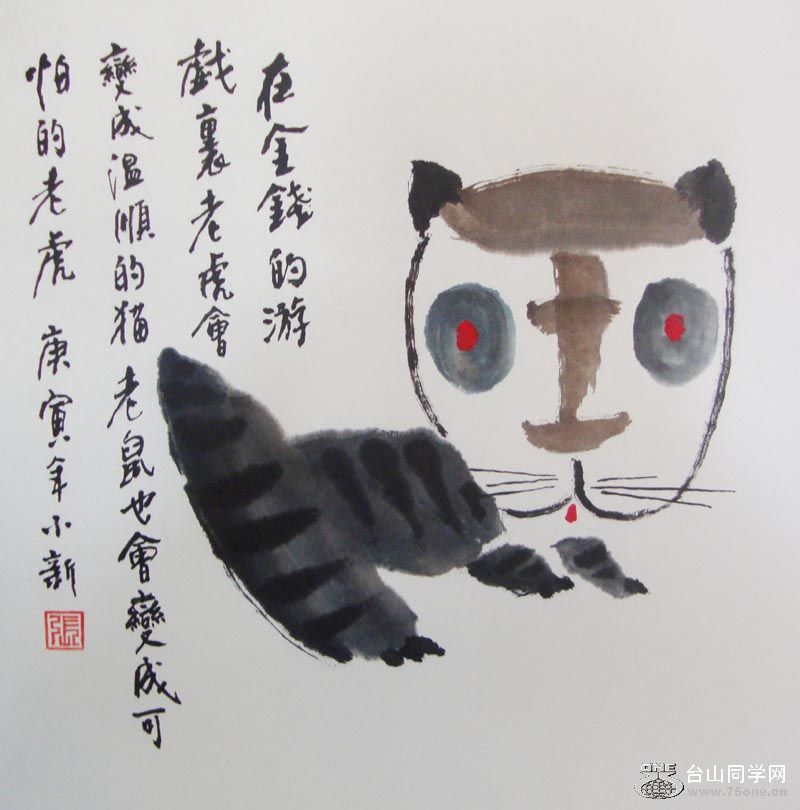 在金錢的游
戲裏老虎會
變成温順的猫 老鼠也會變成可
怕的老虎 庚寅年小新
張
ONE
台山同学网
www.75one.cn